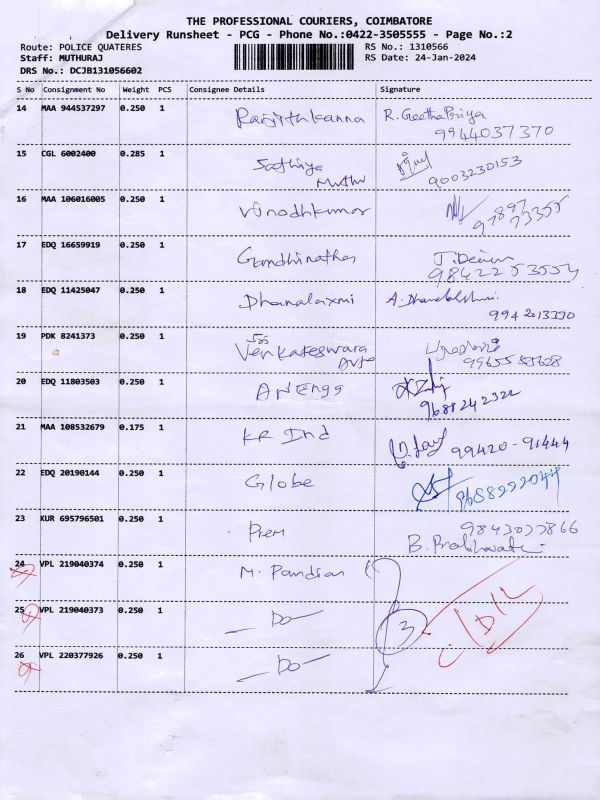 THE PROFESSIONAL COURIERS, COIMBATORE
Delivery Runsheet - PCG - Phone No.:0422-3505555 - Page No.:2
Route: POLICE QUATERES RS No.: 1310566
Staff: MUTHURAJ RS Date: 24-Jan-2024
DRS No.: DCJB131056602
S No Consignment No Weight PCS Consignee Details Signature
14 MAA 944537297 0.250 1 Ranjithkanna R. GeethaPriya
9944037370
15 CGL 6002400 0.285 1 Sathiya
Muthu 9003230153
16 MAA 106016005 0.250 1 Vinodhkumar
17 EDQ 16659919 0.250 1 Gandhinathan
18 EDQ 11425047 0.250 1 Dhanalaxmi
9942013370
19 PDK 8241373 0.250 1 Venkateswara
20 EDQ 11803503 0.250 1
9688242322
21 MAA 108532679 0.175 1 KR Ind 99420-91444
22 EDQ 20190144 0.250 1 Globe
23 KUR 695796501 0.250 1 Prem
24 VPL 219040374 0.250 1 M. Pandian
25 VPL 219040373 0.250 1 - Do - 3
26 VPL 220377926 0.250 1 - Do -